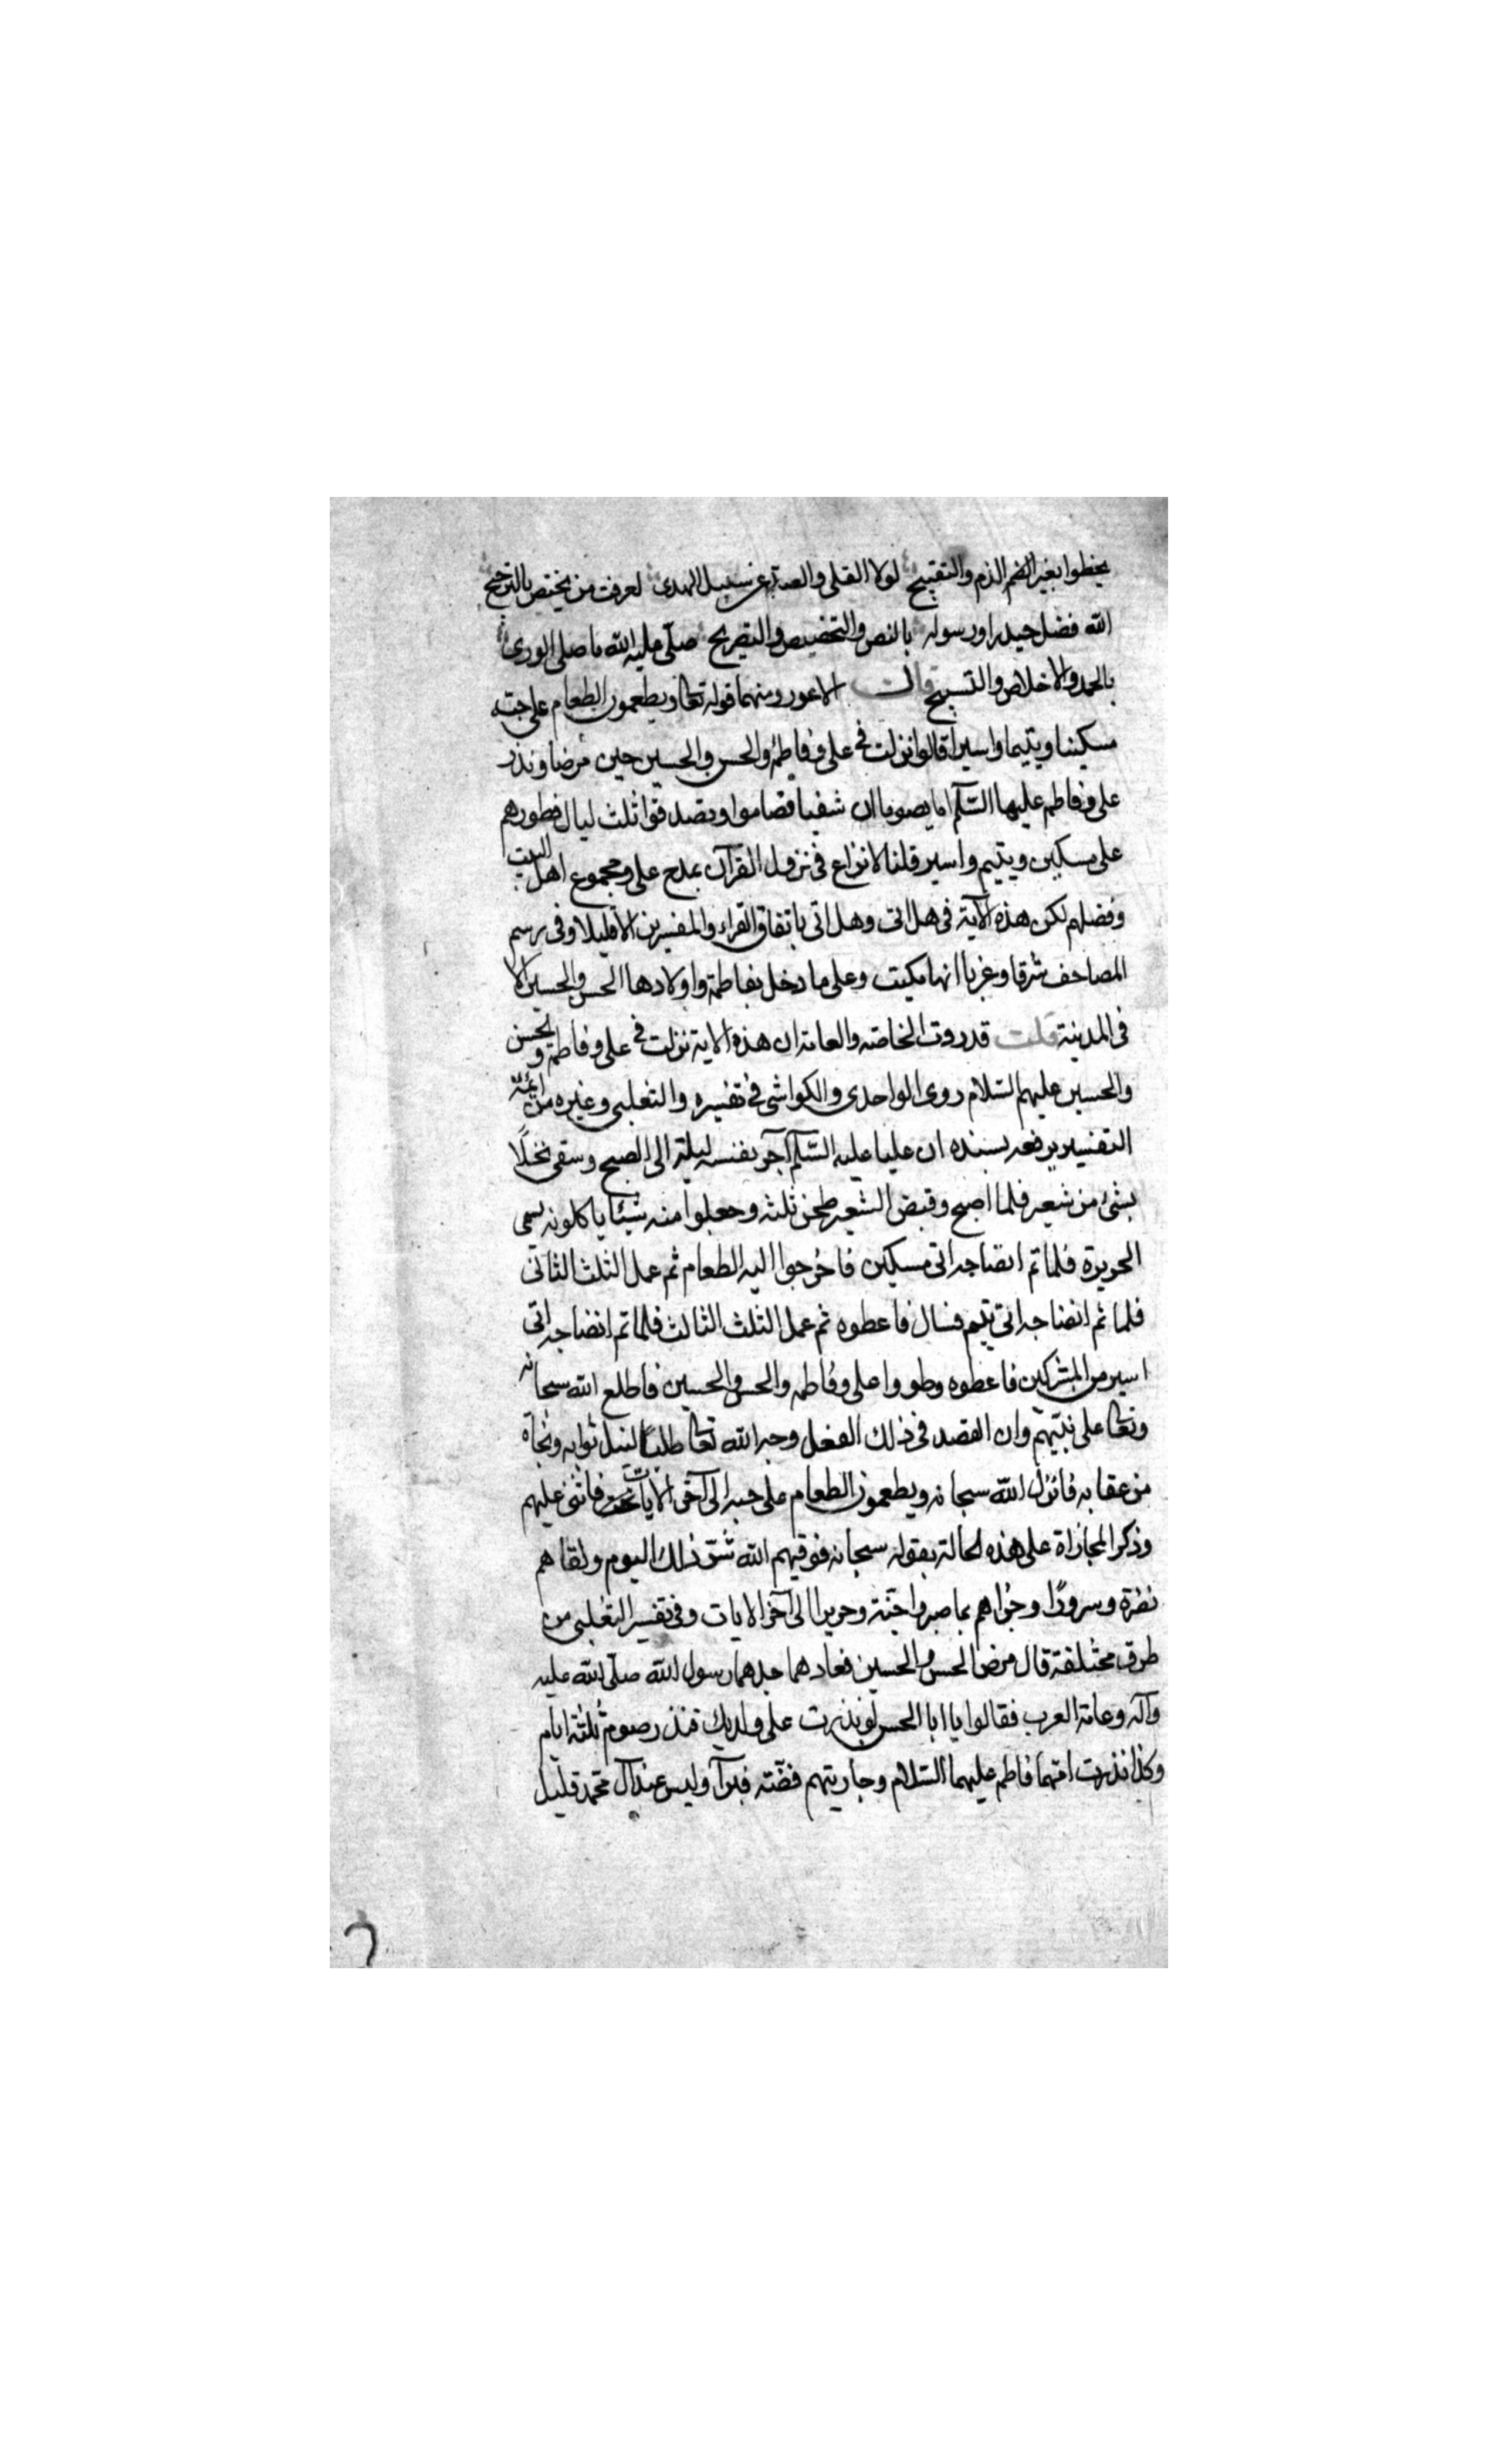 يخطوا بغير الضم الذم والتقبيح لولا القلى والصد عن سبيل الهدى لعرفت من يختص بالترجيح
الله فضل حيدرا ورسوله بالنص والتخصيص والتصريح صلى عليه الله ما صلى الورى
بالحمد والاخلاص والتسبيح قالت الاعور ومنها قوله تعا ويطعمون الطعام على حبه
مسكينا ويتيما واسيرا قالوا نزلت في على وفاطمة والحسن والحسين حين مرضا ونذر
على وفاطمه عليها السلام اما يصوما ان شفيا فصاموا وتصدقوا ثلث ليال فطورهم
على مسكين ويتيم واسير قلنا لا نزاع فى نزول القرآن بمدح على ومجموع اهل البيت
وفضلهم لكن هذه الآية فى هل اتى وهل اتى باتفاق القراء والمفسرين الا قليلا وفى رسم
المصاحف شرقا وغربا انها مكيت وعلى ما دخل بفاطمة واولادها الحسن والحسين الا
فى المدينة قلت قد روت الخاصه والعامة ان هذه الاية نزلت في على وفاطمة والحسن
والحسين عليهم السلام روى الواحدى والكواشى في تفسيره والثعلبى وغيره من ائمة
التفسير يرفعه بسنده ان عليا عليه السلام آجر نفسه ليلة الى الصبح وسقى نخلًا
بشئ من شعير فلما اصبح وقبض الشعير طحن ثلثه وجعلوا منه شيئا ياكلونه يسمى
الحريرة فلما تم انضاجه اتى مسكين فاخرجوا اليه الطعام ثم عمل الثلث الثانى
فلما تم انضاجه اتى يتيم فسال فاعطوه ثم عمل الثلث الثالث فلما تم انضاجه اتى
اسير من المشركين فاعطوه وطووا على وفاطمه والحسن والحسين فاطلع الله سبحانه
وتعا على نيتهم وان القصد فى ذلك الفعل وجه الله تعا طلبًا لنيل ثوابه ونجاة
من عقابه فانزل الله سبحانه ويطعمون الطعام على حبه الى آخر الايات فاثنى عليهم
وذكر المجازاة على هذه الحالة بقوله سبحانه فوقيهم الله شر ذلك اليوم ولقاهم
نضرة وسرورًا وجزاهم بما صبروا جنة وحريرا الى آخر الايات وفى تفسير الثعلبى من
طرق مختلفة قال مرض الحسن والحسين فعادهما جدهما رسول الله صلى الله عليه
وآله وعامة العرب فقالوا يا ابا الحسن لو نذرت على ولديك فنذر صوم ثلثة ايام
وكذا نذرت امهما فاطمه عليهما السلام وجاريتهم فضة فبرآ وليس عند آل محمد قليل